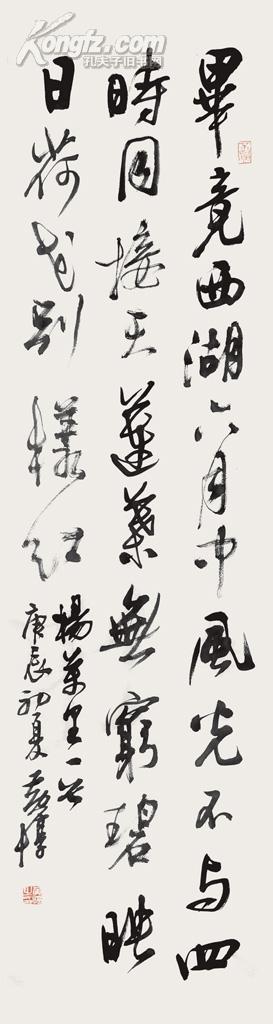 Kongfz.com
孔夫子旧书网
畢竟西湖六月中風光不与四
時同接天蓮葉無窮碧映
日荷花別樣紅
楊萬里一首
庚辰初夏黃惇